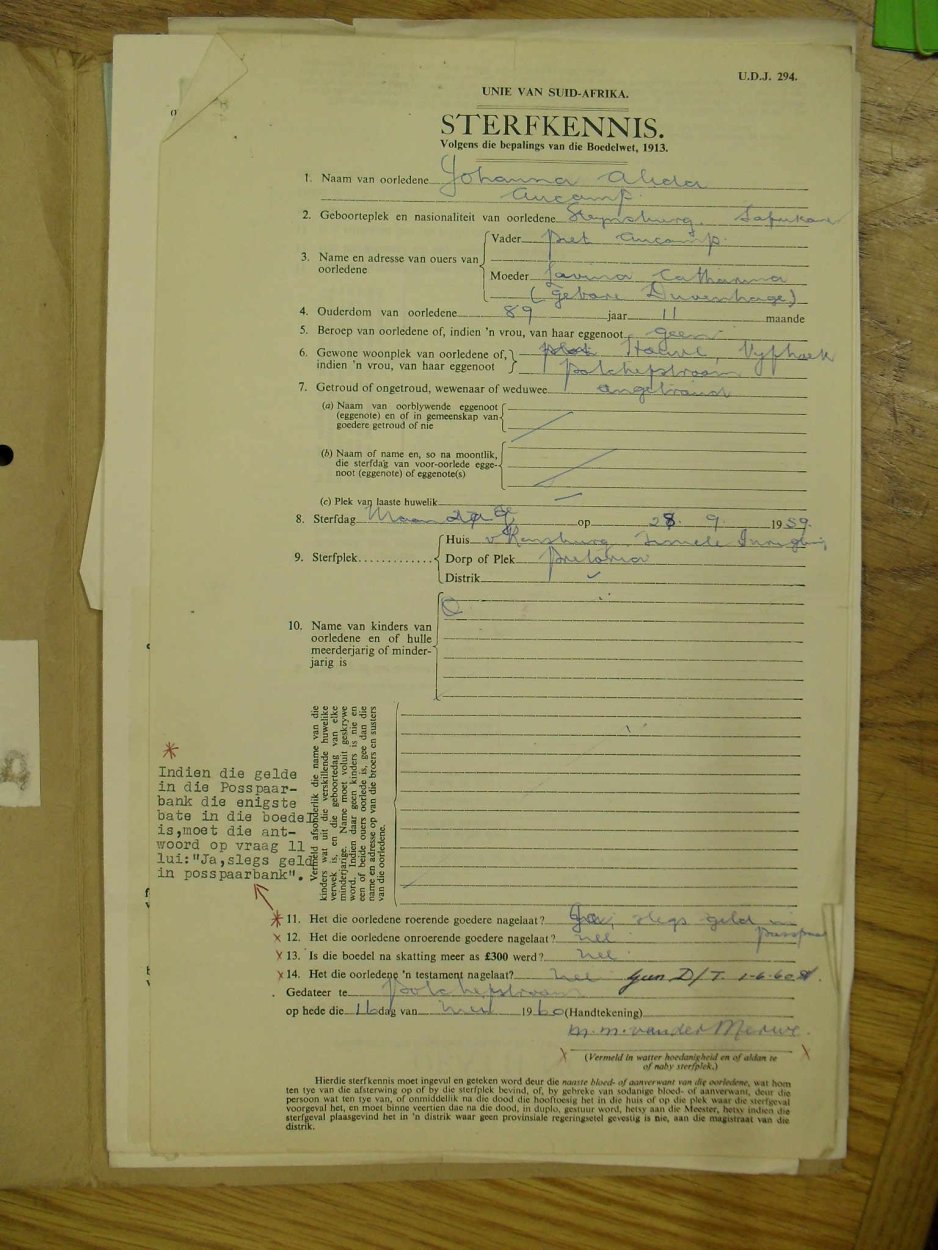 U.D.J. 294.
UNIE VAN SUID-AFRIKA.
STERFKENNIS.
Volgens die bepalings van die Boedelwet, 1913.
1. Naam van oorledene Johanna Aleda
Aucamp
2. Geboorteplek en nasionaliteit van oorledene Steynsburg.
Vader Piet Aucamp.
3. Name en adresse van ouers van oorledene
Moeder Lavina Catharina
(Gebore Duvenhage)
4. Ouderdom van oorledene 89 jaar 11 maande
5. Beroep van oorledene of, indien 'n vrou, van haar eggenoot Geen
6. Gewone woonplek van oorledene of, Vyfhoek
indien 'n vrou, van haar eggenoot Potchefstroom
7. Getroud of ongetroud, wewenaar of weduwee ongetroud
(a) Naam van oorblywende eggenoot
(eggenote) en of in gemeenskap van
goedere getroud of nie
(b) Naam of name en, so na moontlik,
die sterfdag van voor-oorlede egge-
noot (eggenote) of eggenote(s)
(c) Plek van laaste huwelik
8. Sterfdag Maandag op 28. 9. 1959.
Huis v Rensburg
9. Sterfplek............ Dorp of Plek Pretoria
Distrik
10. Name van kinders van
oorledene en of hulle
meerderjarig of minder-
jarig is
Vermeld afsonderlik die name van die
kinders wat uit die verskillende huwelike
verwek is, en die geboortedag van elke
minderjarige. Name moet voluit geskrywe
word. Indien daar geen kinders is nie en
een of beide ouers oorlede is, gee dan die
name en adresse op van die broers en susters
van die oorledene.
*
Indien die gelde
in die Posspaar-
bank die enigste
bate in die boedel
is,moet die ant-
woord op vraag 11
lui:"Ja,slegs geld
in posspaarbank".
* 11. Het die oorledene roerende goedere nagelaat? slegs geld in
posspaar
x 12. Het die oorledene onroerende goedere nagelaat? nee
x 13. Is die boedel na skatting meer as £300 werd? nee
x 14. Het die oorledene 'n testament nagelaat? nee Geen D/T. 1-6-60
Gedateer te Potchefstroom
op hede die 16 dag van Mei 1960 (Handtekening)
M. M. van der Merwe.
x (Vermeld in watter hoedanigheid en of aldan te x
of naby sterfplek.)
Hierdie sterfkennis moet ingevul en geteken word deur die naaste bloed- of aanverwant van die oorledene, wat hom
ten tye van die afsterwing op of by die sterfplek bevind, of, by gebreke van sodanige bloed- of aanverwant, deur die
persoon wat ten tye van, of onmiddellik na die dood die hooftoesig het in die huis of op die plek waar die sterfgeval
voorgeval het, en moet binne veertien dae na die dood, in duplo, gestuur word, hetsy aan die Meester, hetsy indien die
sterfgeval plaasgevind het in 'n distrik waar geen provinsiale regeringsetel gevestig is nie, aan die magistraat van die
distrik.